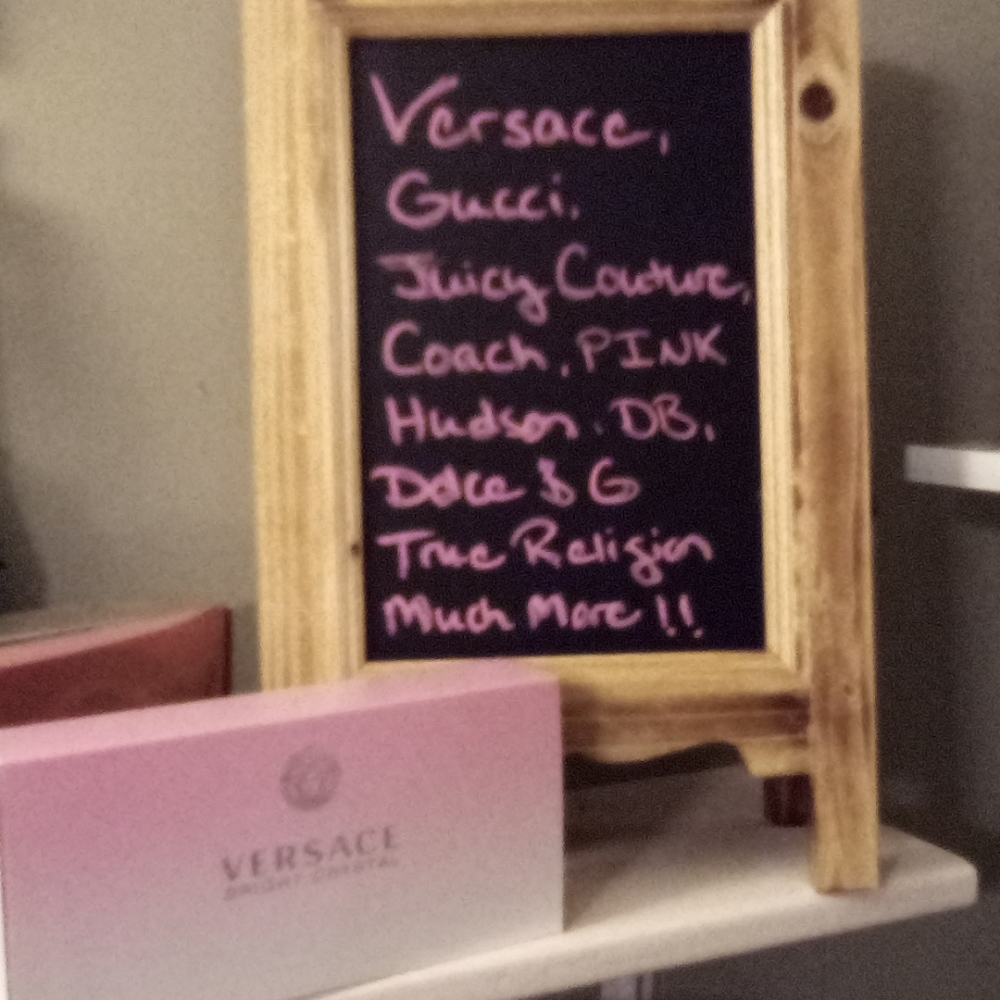 Versace,
Gucci.
Juicy Couture,
Coach, PINK
Hudson. DB.
Dolce & G
True Religion
Much More !!
VERSACE
BRIGHT CRYSTAL